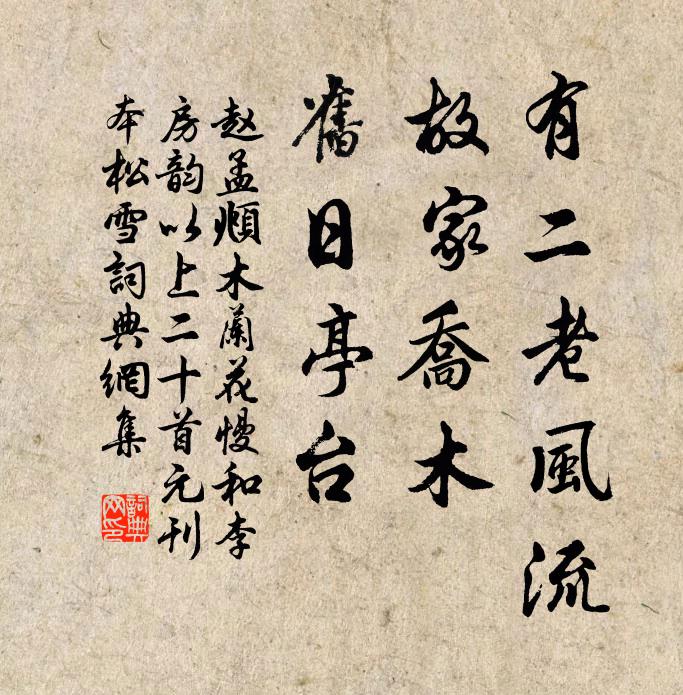 有二老風流
故家喬木
舊日亭台
赵孟頫木蘭花慢和李
房韵以上二十首元刊
本松雪詞典網集
詞典
网印